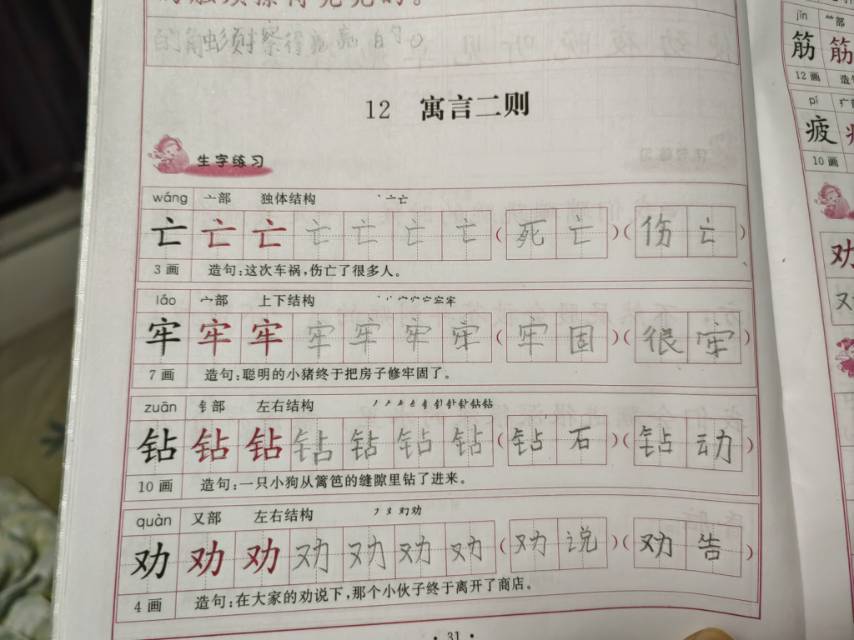 的触须擦得亮亮的。
12 寓言二则
生字练习
wáng 亠部 独体结构
亡 亡 亡 亡 亡 亡 亡 (死亡)(伤亡)
3画 造句:这次车祸,伤亡了很多人。
láo 宀部 上下结构
牢 牢 牢 牢 牢 牢 牢 (牢固)(很牢)
7画 造句:聪明的小猪终于把房子修牢固了。
zuān 钅部 左右结构
钻 钻 钻 钻 钻 钻 钻 (钻石)(钻动)
10画 造句:一只小狗从篱笆的缝隙里钻了进来。
quàn 又部 左右结构
劝 劝 劝 劝 劝 劝 劝 (劝说)(劝告)
4画 造句:在大家的劝说下,那个小伙子终于离开了商店。
·31·
jīn 部
筋 筋
12画 造句
pí
疲
10画
劝
又